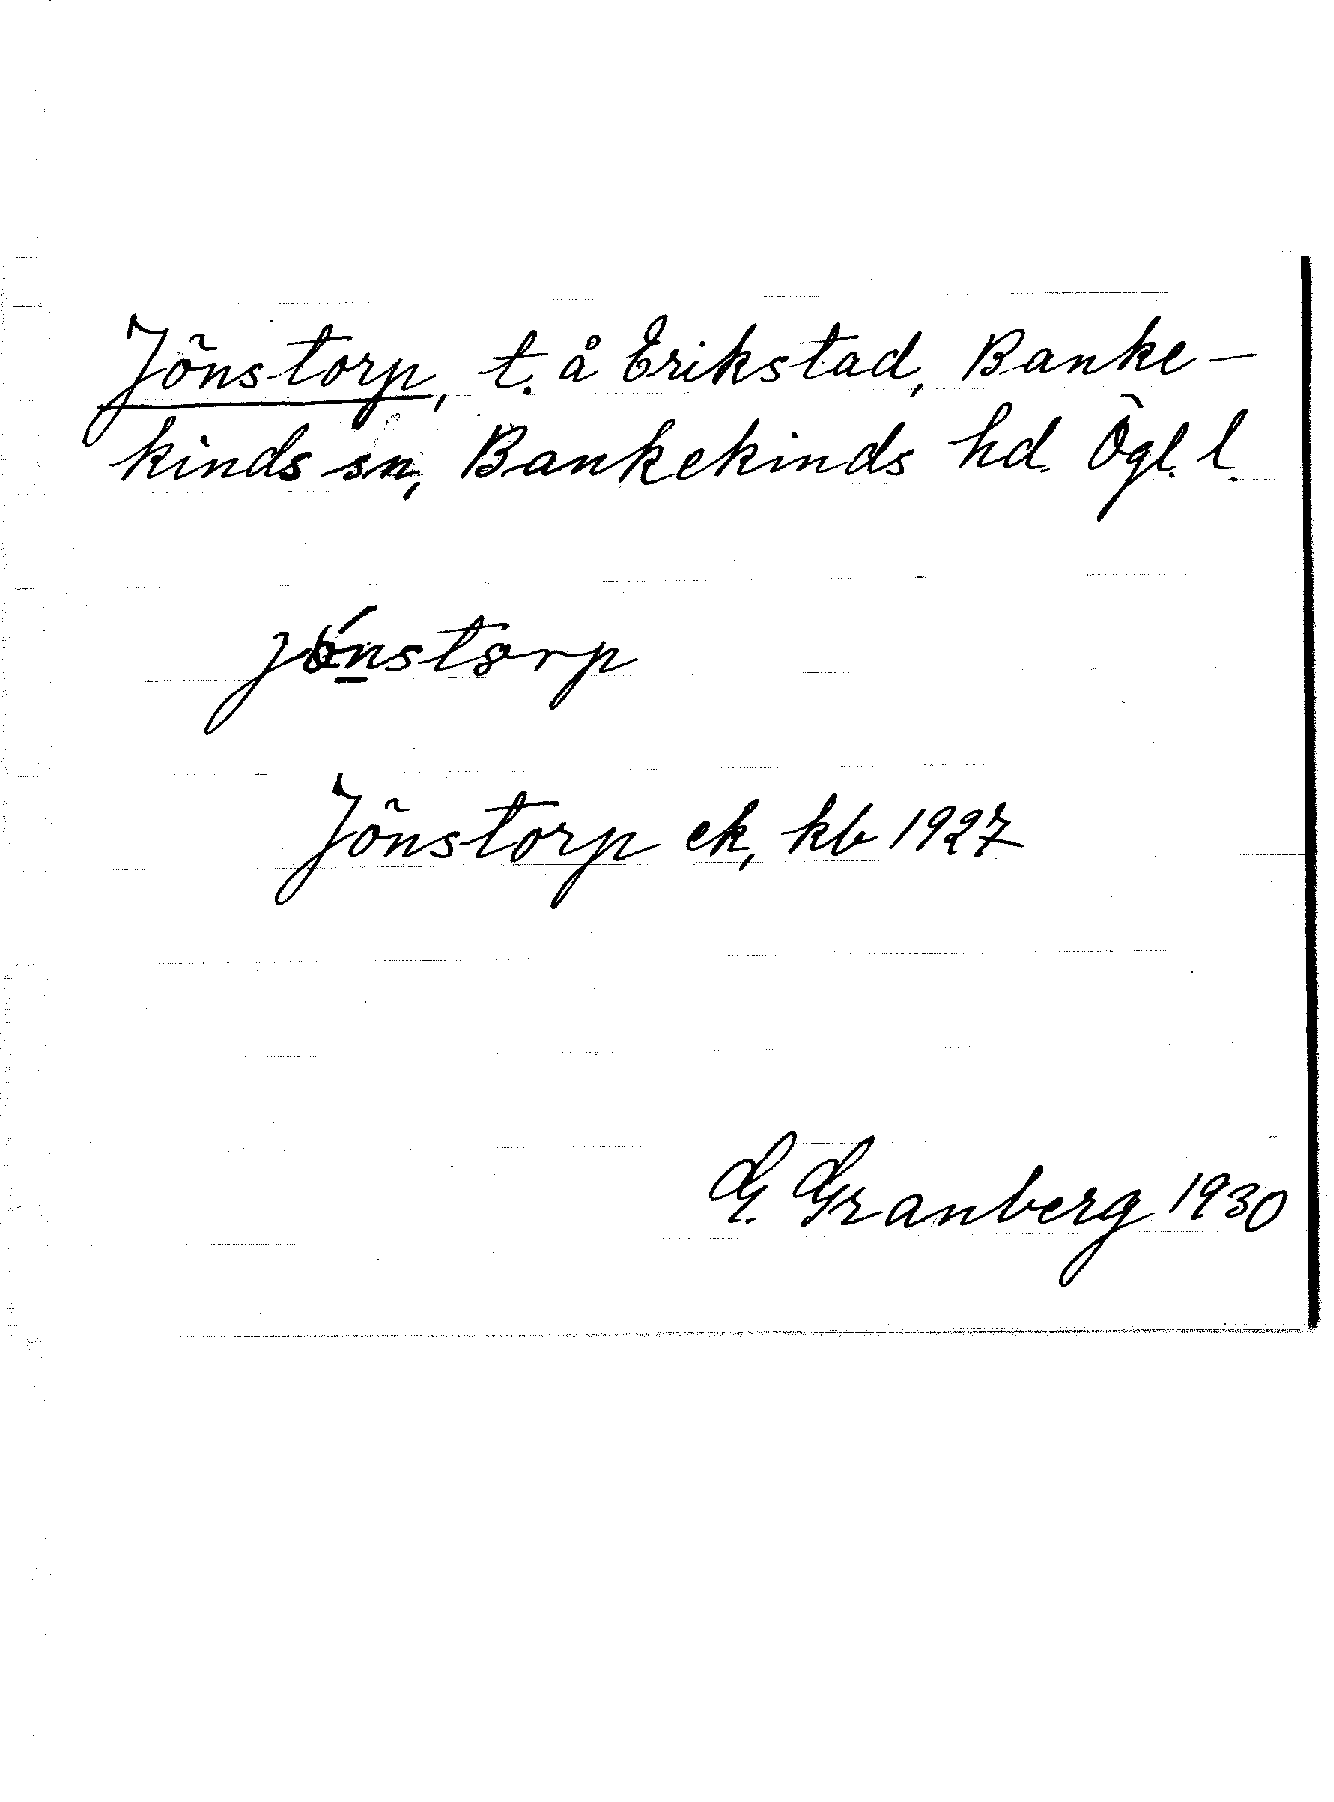 Jönstorp, t. å Erikstad, Banke-
kinds sn, Bankekinds hd. Ögl. l.
jönstorp
Jönstorp ek, kb 1927
G. Granberg 1930